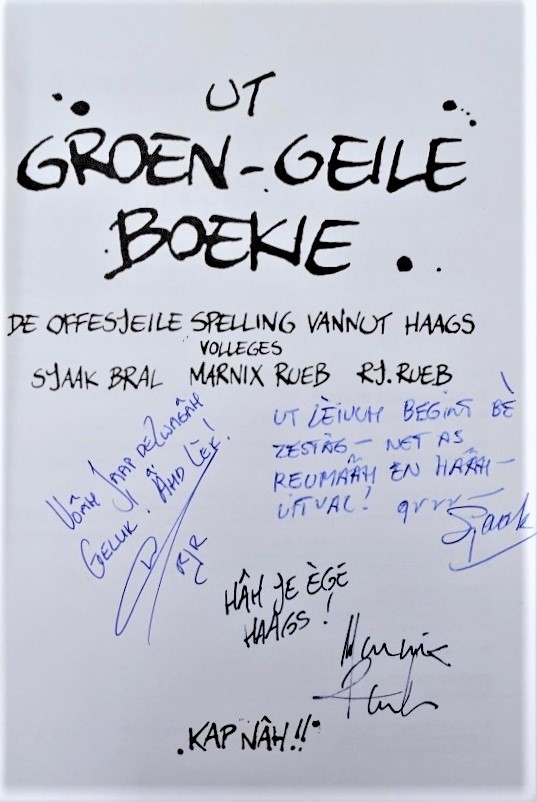 UT
GROEN-GEILE
BOEKIE.
DE OFFESJEILE SPELLING VANNUT HAAGS
VOLLEGES
SJAAK BRAL MARNIX RUEB RJ. RUEB
VÔÂH JAAP DE ZWAGÂH
GELUK! ÂHD LÈK!
RJR
UT LÈIVUH BEGINT BÈ
ZESTAG - NET AS
REUMÂÂH EN HÂÂH-
UITVAL!
Sjaak
HÂH JE ÈGE
HAAGS!
Marnix
Rueb
KAP NÂH!!